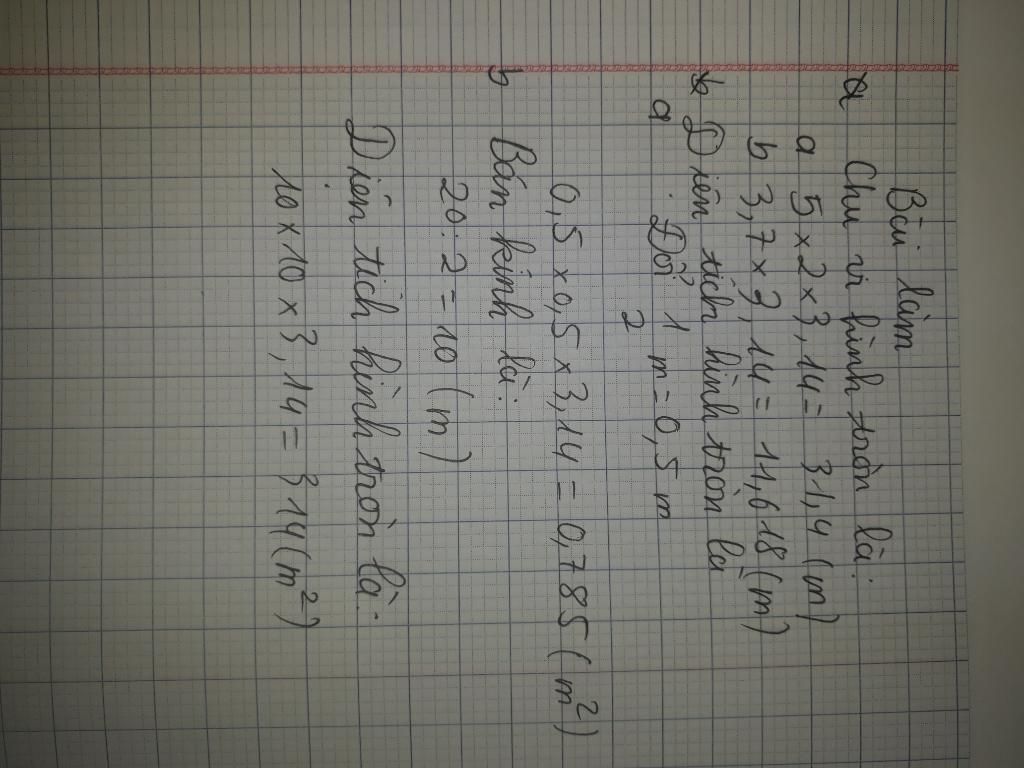 Bài làm
* Chu vi hình tròn là:
a 5 x 2 x 3,14 = 31,4 (m)
b 3,7 x 3,14 = 11,618 (m)
* Diện tích hình tròn là
a Đổi 1/2 m = 0,5 m
0,5 x 0,5 x 3,14 = 0,785 (m²)
b Bán kính là:
20 : 2 = 10 (m)
Diện tích hình tròn là:
10 x 10 x 3,14 = 314 (m²)